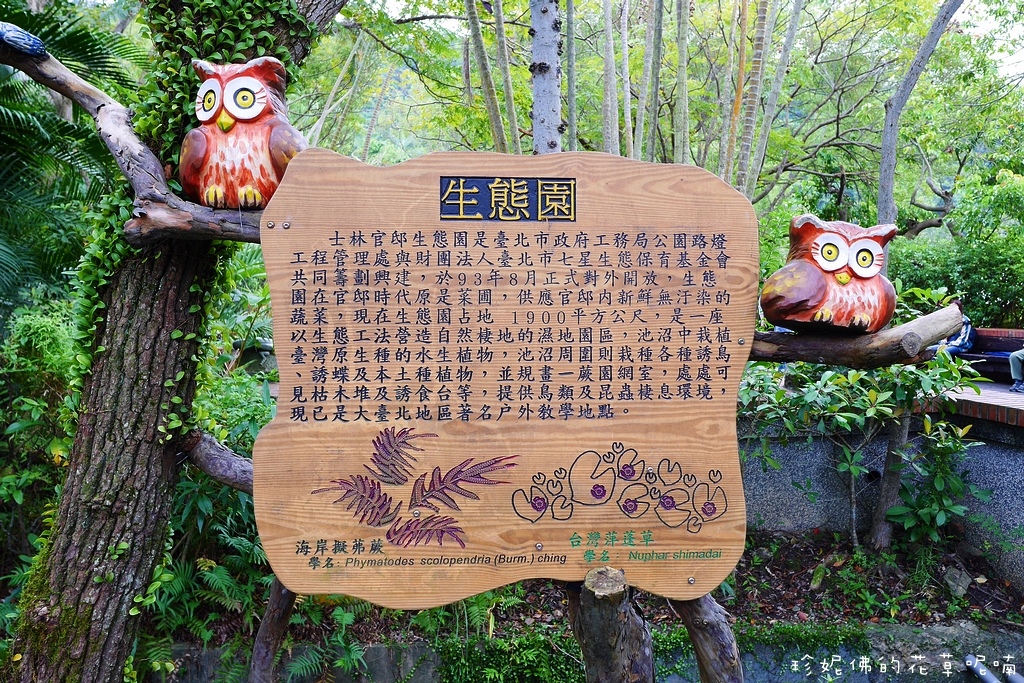 生態園
士林官邸生態園是臺北市政府工務局公園路燈
工程管理處與財團法人臺北市七星生態保育基金會
共同籌劃興建，於93年8月正式對外開放，生態
園在官邸時代原是菜圃，供應官邸內新鮮無汙染的
蔬菜，現在生態園占地 1900平方公尺，是一座
以生態工法營造自然棲地的濕地園區，池沼中栽植
臺灣原生種的水生植物，池沼周圍則栽種各種誘鳥
、誘蝶及本土種植物，並規畫一蕨園網室，處處可
見枯木堆及誘食台等，提供鳥類及昆蟲棲息環境，
現已是大臺北地區著名戶外教學地點。
海岸擬茀蕨
學名：Phymatodes scolopendria (Burm.) ching
台灣萍蓬草
學名： Nuphar shimadai
珍妮佛的花草呢喃